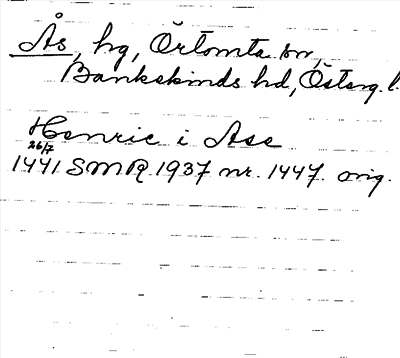 Ås, hg, Örtomta sn,
Bankekinds hd, Österg. l.
Henric i Ase
26/7
1441 SMR 1937 nr. 1447. orig.